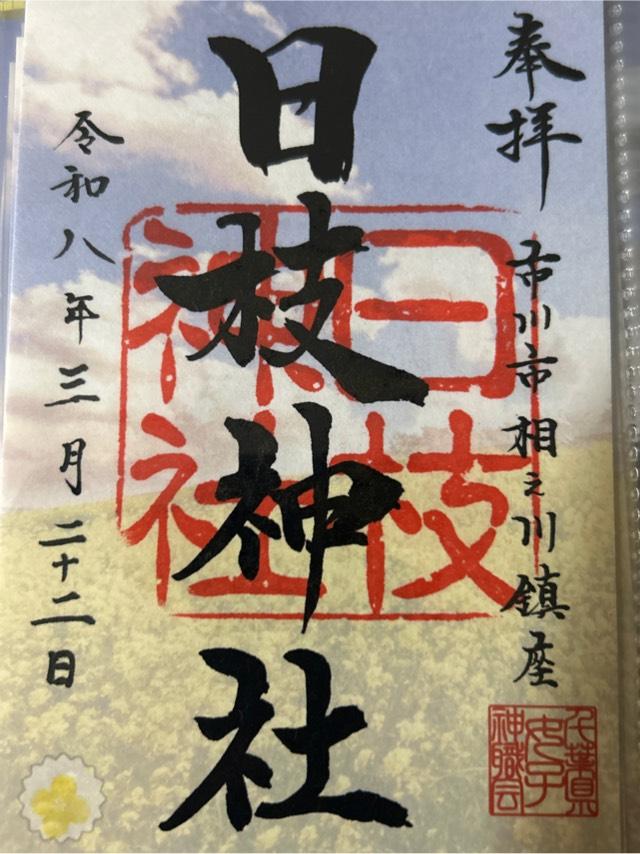 奉拝
市川市相之川鎮座
日枝神社
日枝
神社
令和八年三月二十二日
千葉県
女子
神職会